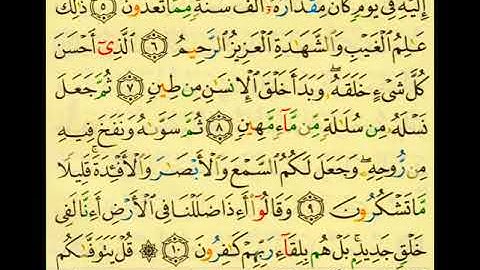 إِلَيْهِ فِى يَوْمٍ كَانَ مِقْدَارُهُۥٓ أَلْفَ سَنَةٍ مِّمَّا تَعُدُّونَ ٥ ذَٰلِكَ
عَٰلِمُ ٱلْغَيْبِ وَٱلشَّهَٰدَةِ ٱلْعَزِيزُ ٱلرَّحِيمُ ٦ ٱلَّذِىٓ أَحْسَنَ
كُلَّ شَىْءٍ خَلَقَهُۥ ۖ وَبَدَأَ خَلْقَ ٱلْإِنسَٰنِ مِن طِينٍ ٧ ثُمَّ جَعَلَ
نَسْلَهُۥ مِن سُلَٰلَةٍ مِّن مَّآءٍ مَّهِينٍ ٨ ثُمَّ سَوَّىٰهُ وَنَفَخَ فِيهِ
مِن رُّوحِهِۦ ۖ وَجَعَلَ لَكُمُ ٱلسَّمْعَ وَٱلْأَبْصَٰرَ وَٱلْأَفْـِٔدَةَ ۚ قَلِيلًا
مَّا تَشْكُرُونَ ٩ وَقَالُوٓا۟ أَءِذَا ضَلَلْنَا فِى ٱلْأَرْضِ أَءِنَّا لَفِى
خَلْقٍ جَدِيدٍۭ ۚ بَلْ هُم بِلِقَآءِ رَبِّهِمْ كَٰفِرُونَ ١٠ ۞ قُلْ يَتَوَفَّىٰكُم